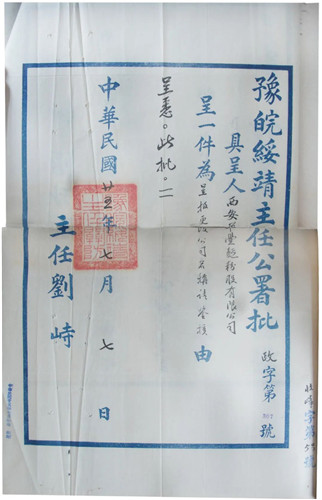 豫皖綏靖主任公署批
政字第 號
具呈人西安 豐麵粉股有限公司
呈一件為呈報更改公司名稱請鑒核由
呈悉。此批。
中華民國廿五年七月七日
主任劉峙